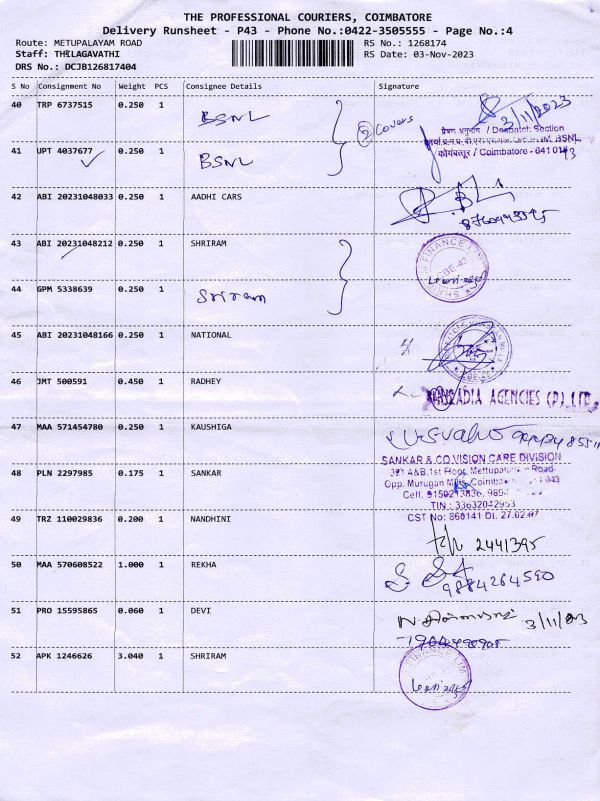 THE PROFESSIONAL COURIERS, COIMBATORE
Delivery Runsheet - P43 - Phone No.:0422-3505555 - Page No.:4
Route: METUPALAYAM ROAD RS No.: 1268174
Staff: THILAGAVATHI RS Date: 03-Nov-2023
DRS No.: DCJB126817404
S No Consignment No Weight PCS Consignee Details Signature
40 TRP 6737515 0.250 1 BSNL
2 Covers
3/11/2023
प्रेषण अनुभाग / Despatch Section
BSNL
कोयंबत्तूर / Coimbatore - 641 043
41 UPT 4037677 0.250 1 BSNL
42 ABI 20231048033 0.250 1 AADHI CARS
43 ABI 20231048212 0.250 1 SHRIRAM
FINANCE LIM
CBE-43
44 GPM 5338639 0.250 1 Sriram
45 ABI 20231048166 0.250 1 NATIONAL
46 JMT 500591 0.450 1 RADHEY
AGENCIES (P) LTD
47 MAA 571454780 0.250 1 KAUSHIGA
SANKAR & CO VISION CARE DIVISION
48 PLN 2297985 0.175 1 SANKAR
321 A&B,1st Floor, Mettupalayam Road
Opp. Murugan Coimbatore 043
Cell.
TIN : 33632042953
CST No: 860141 Dt. 27.02.
49 TRZ 110029836 0.200 1 NANDHINI
2441395
50 MAA 570608522 1.000 1 REKHA
9884264590
51 PRO 15595865 0.060 1 DEVI
3/11/23
52 APK 1246626 3.040 1 SHRIRAM
FINANCE LIM